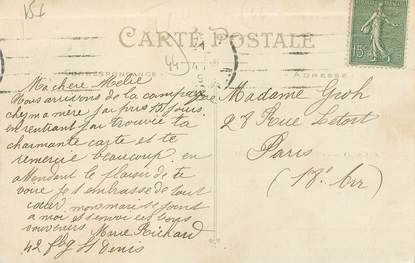 151
CARTE POSTALE
CORRESPONDANCE
ADRESSE
15
Ma chère Melie
Nous arrivons de la campagne
chez ma mère j'ai pris 15 jours.
en rentrant j'ai trouvée ta
charmante carte et te
remercie beaucoup. en
attendant le plaisir de te
voir je t'embrasse de tout
cœur mon mari se joint
a moi et t'envoi ces bons
souvenirs Marie Richard
42 fbg St Denis
Madame Groh
28 Rue Letort
Paris
(18e Arr)